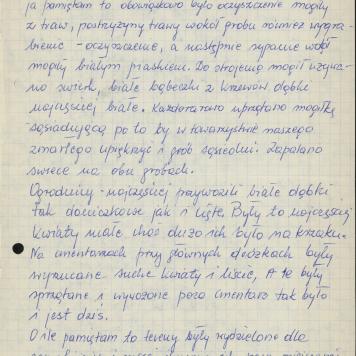 ja pamiętam to obowiązkowo było oczyszczenie mogiły
z traw, postrzyżyny trawy wokół grobu również wygra-
bienie - oczyszczenie, a następnie sypanie wokół
mogiły białym piaskiem. Do strojenia mogił używa-
no świerk, białe z krzewów dąbki
najczęściej białe. Każdorazowo sprzątano mogiłkę
sąsiadującą po to by w towarzystwie naszego
zmarłego upiększyć i grób sąsiedni. Zapalano
świece na obu grobach.
Ogrodnicy - najczęściej przywozili białe dąbki
tak doniczkowe jak i cięte. Były to najczęściej
kwiaty małe choć dużo ich było na krzaku.
Na cmentarzach przy głównych były
wyrzucane suche kwiaty i liście, A te były
sprzątane i wywożone poza cmentarz tak było
i jest dziś.
O ile pamiętam to tereny były wydzielone dla